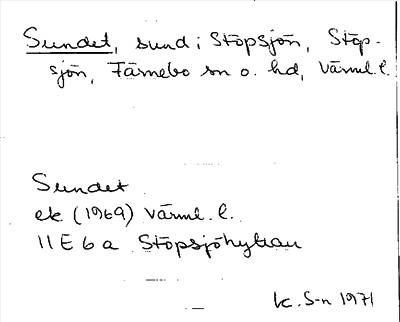 Sundet, sund i Stöpsjön, Stöp-
sjön, Färnebo sn o. hd, Värml. l.
Sundet
ek (1969) Värml. l.
11 E 6 a Stöpsjöhyttan
k. S-n 1971